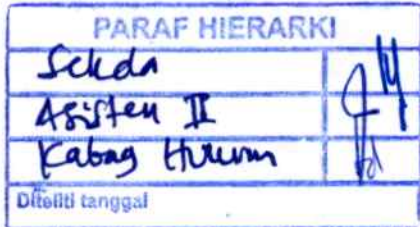 PARAF HIERARKI
Sekda
Asisten II
Kabag Hukum
Diteliti tanggal